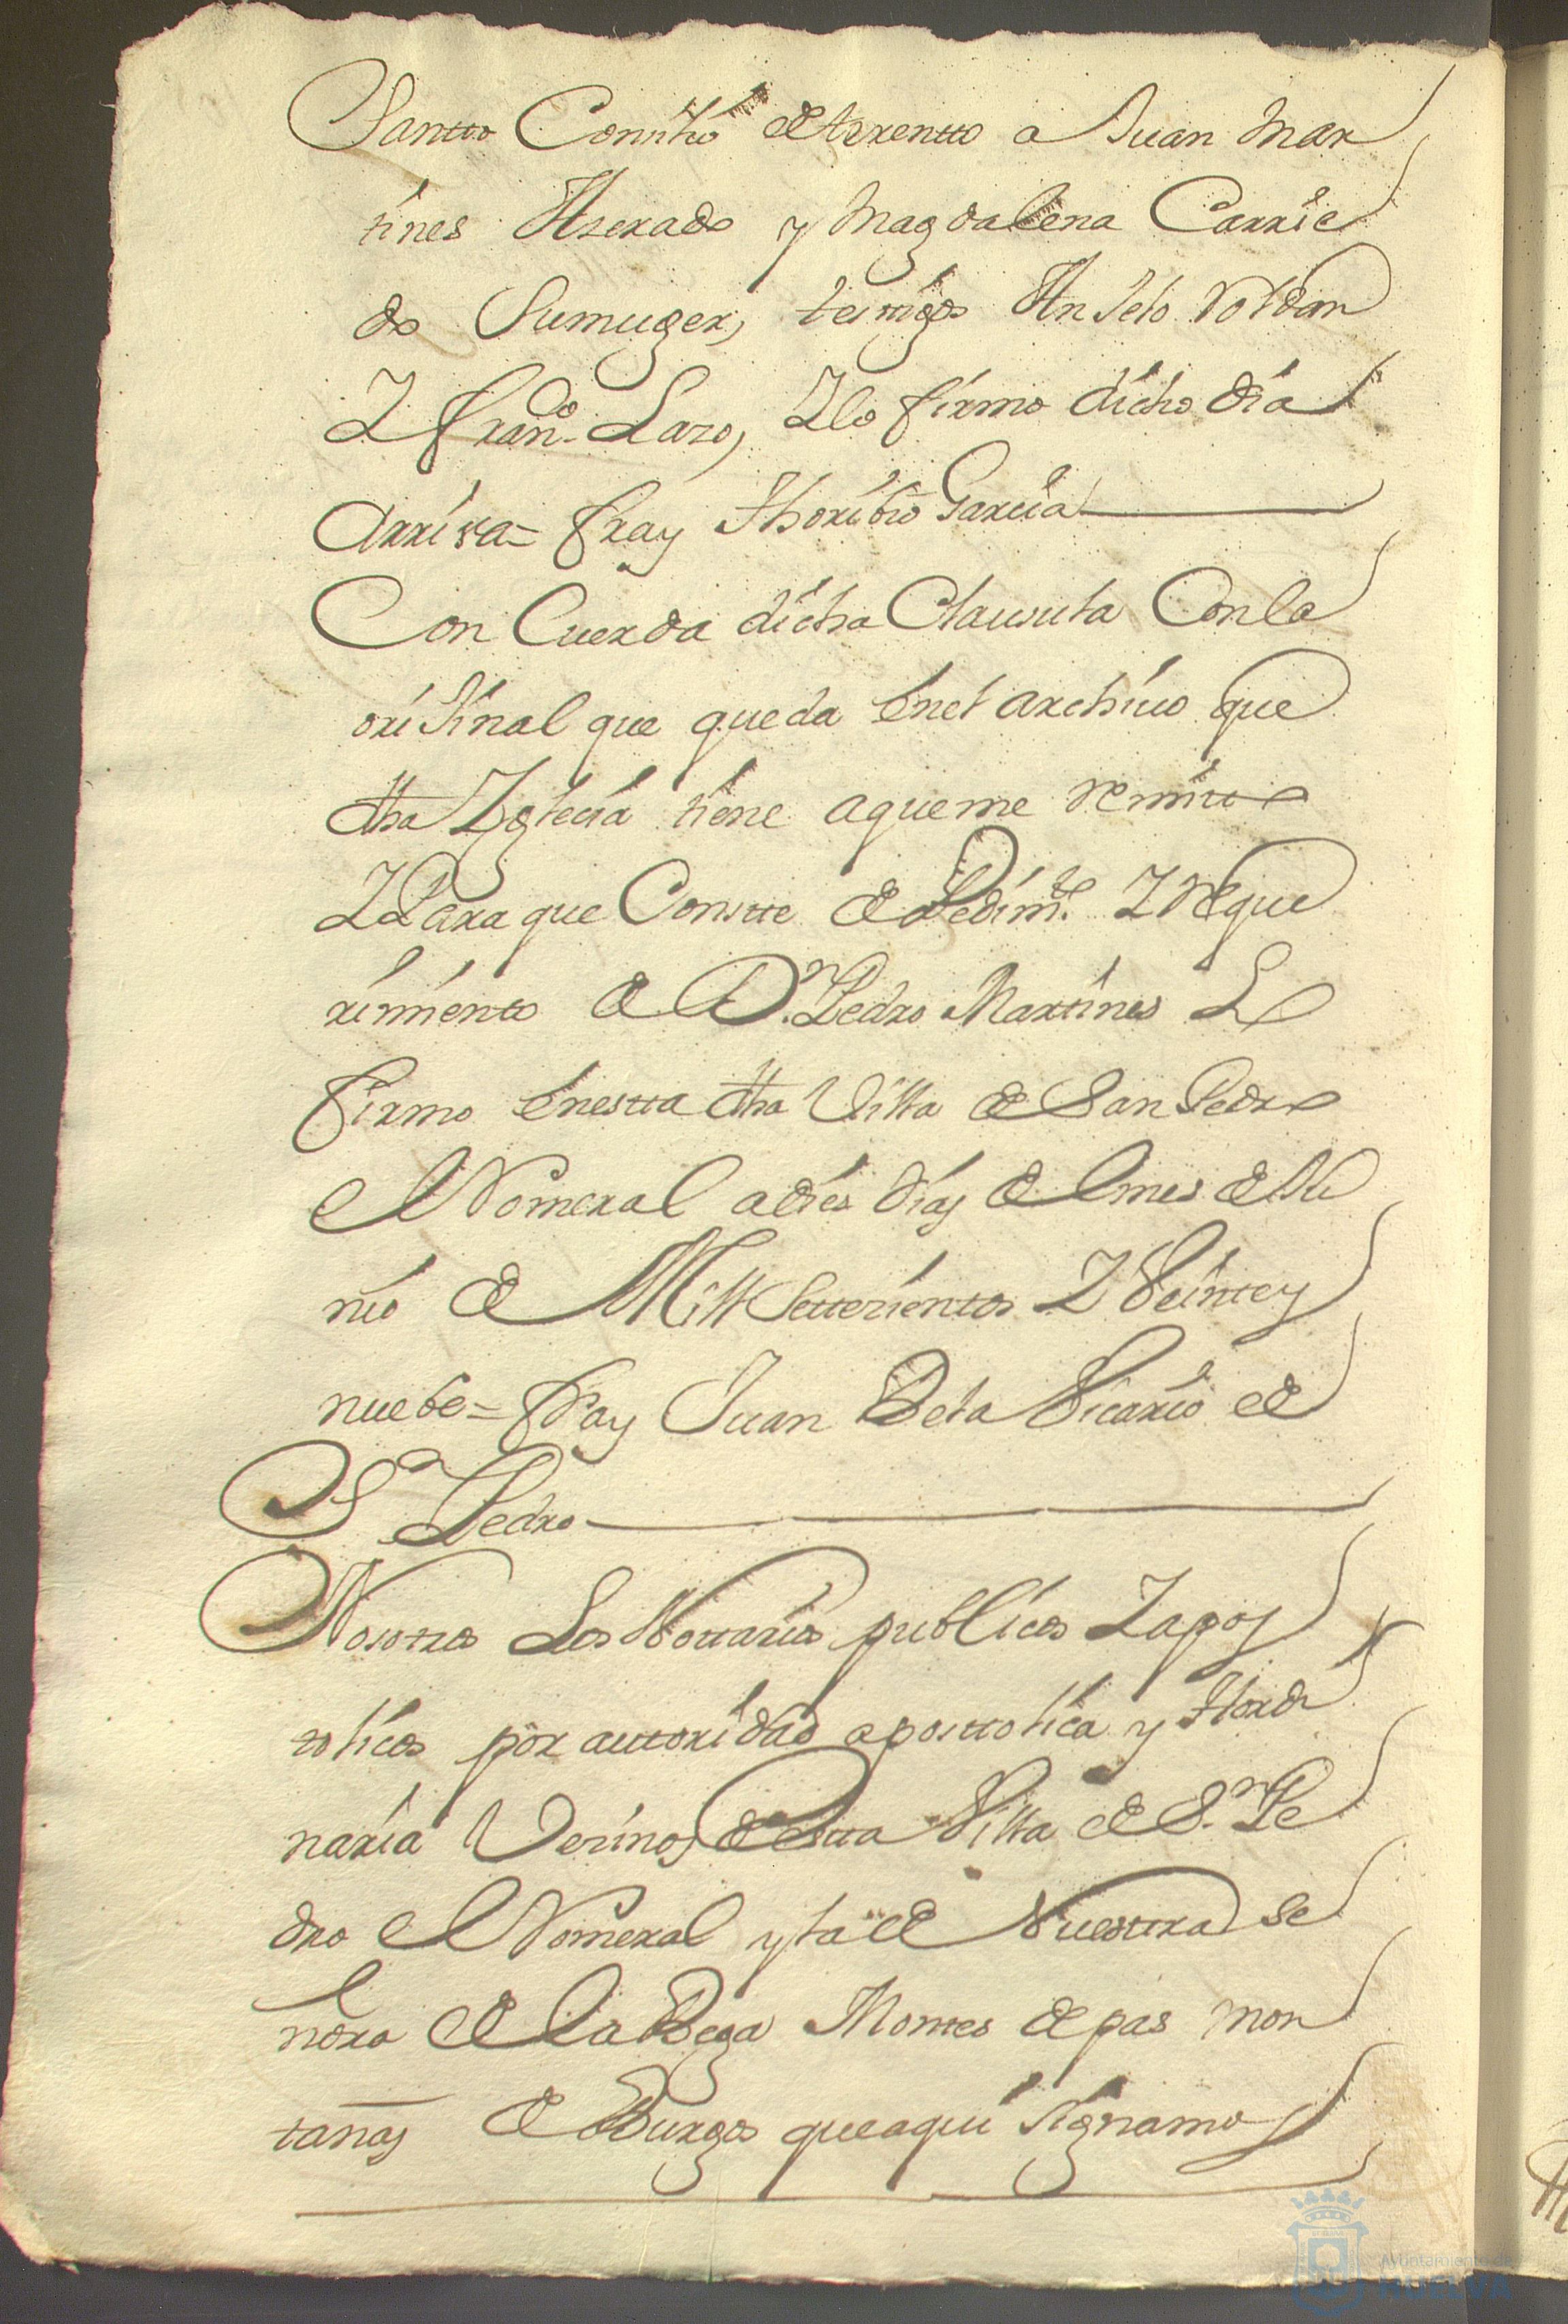 Santto Conçilio de trentto a Juan Mar
tines Aserado y Magdalena Carrie
do Sumuger, testigos Anjelo Roldan
Y fran.co Lazo, Ylo firmo dicho dia
Arriva = fray thoribio Garcia
Con Cuerda dicha Clausula Conla
orijinal que queda Enel archivo que
dha Yglecia tiene aqueme remitto
YPara que Constte de Pedim.to Y Reque
rimiento de D.n Pedro Martines Lo
firmo Enestta dha Villa de San Pedro
el Romeral adies dias de el mes de Ju
nio de Mill Settezientos Y Veintey
nuebe = fray Juan Vela Vicario de
S.n Pedro
Nosotros Los Nottarios publicos Yapos
tolicos por autoridad aposttolica y Hordi
naria Vezinos de estta Villa de S.n Pe
dro el Romeral y la de Nuesttra Se
ñora de la Vega Montes de pas mon
tañas de Burgos queaqui signamos
Ayuntamiento de
HUELVA